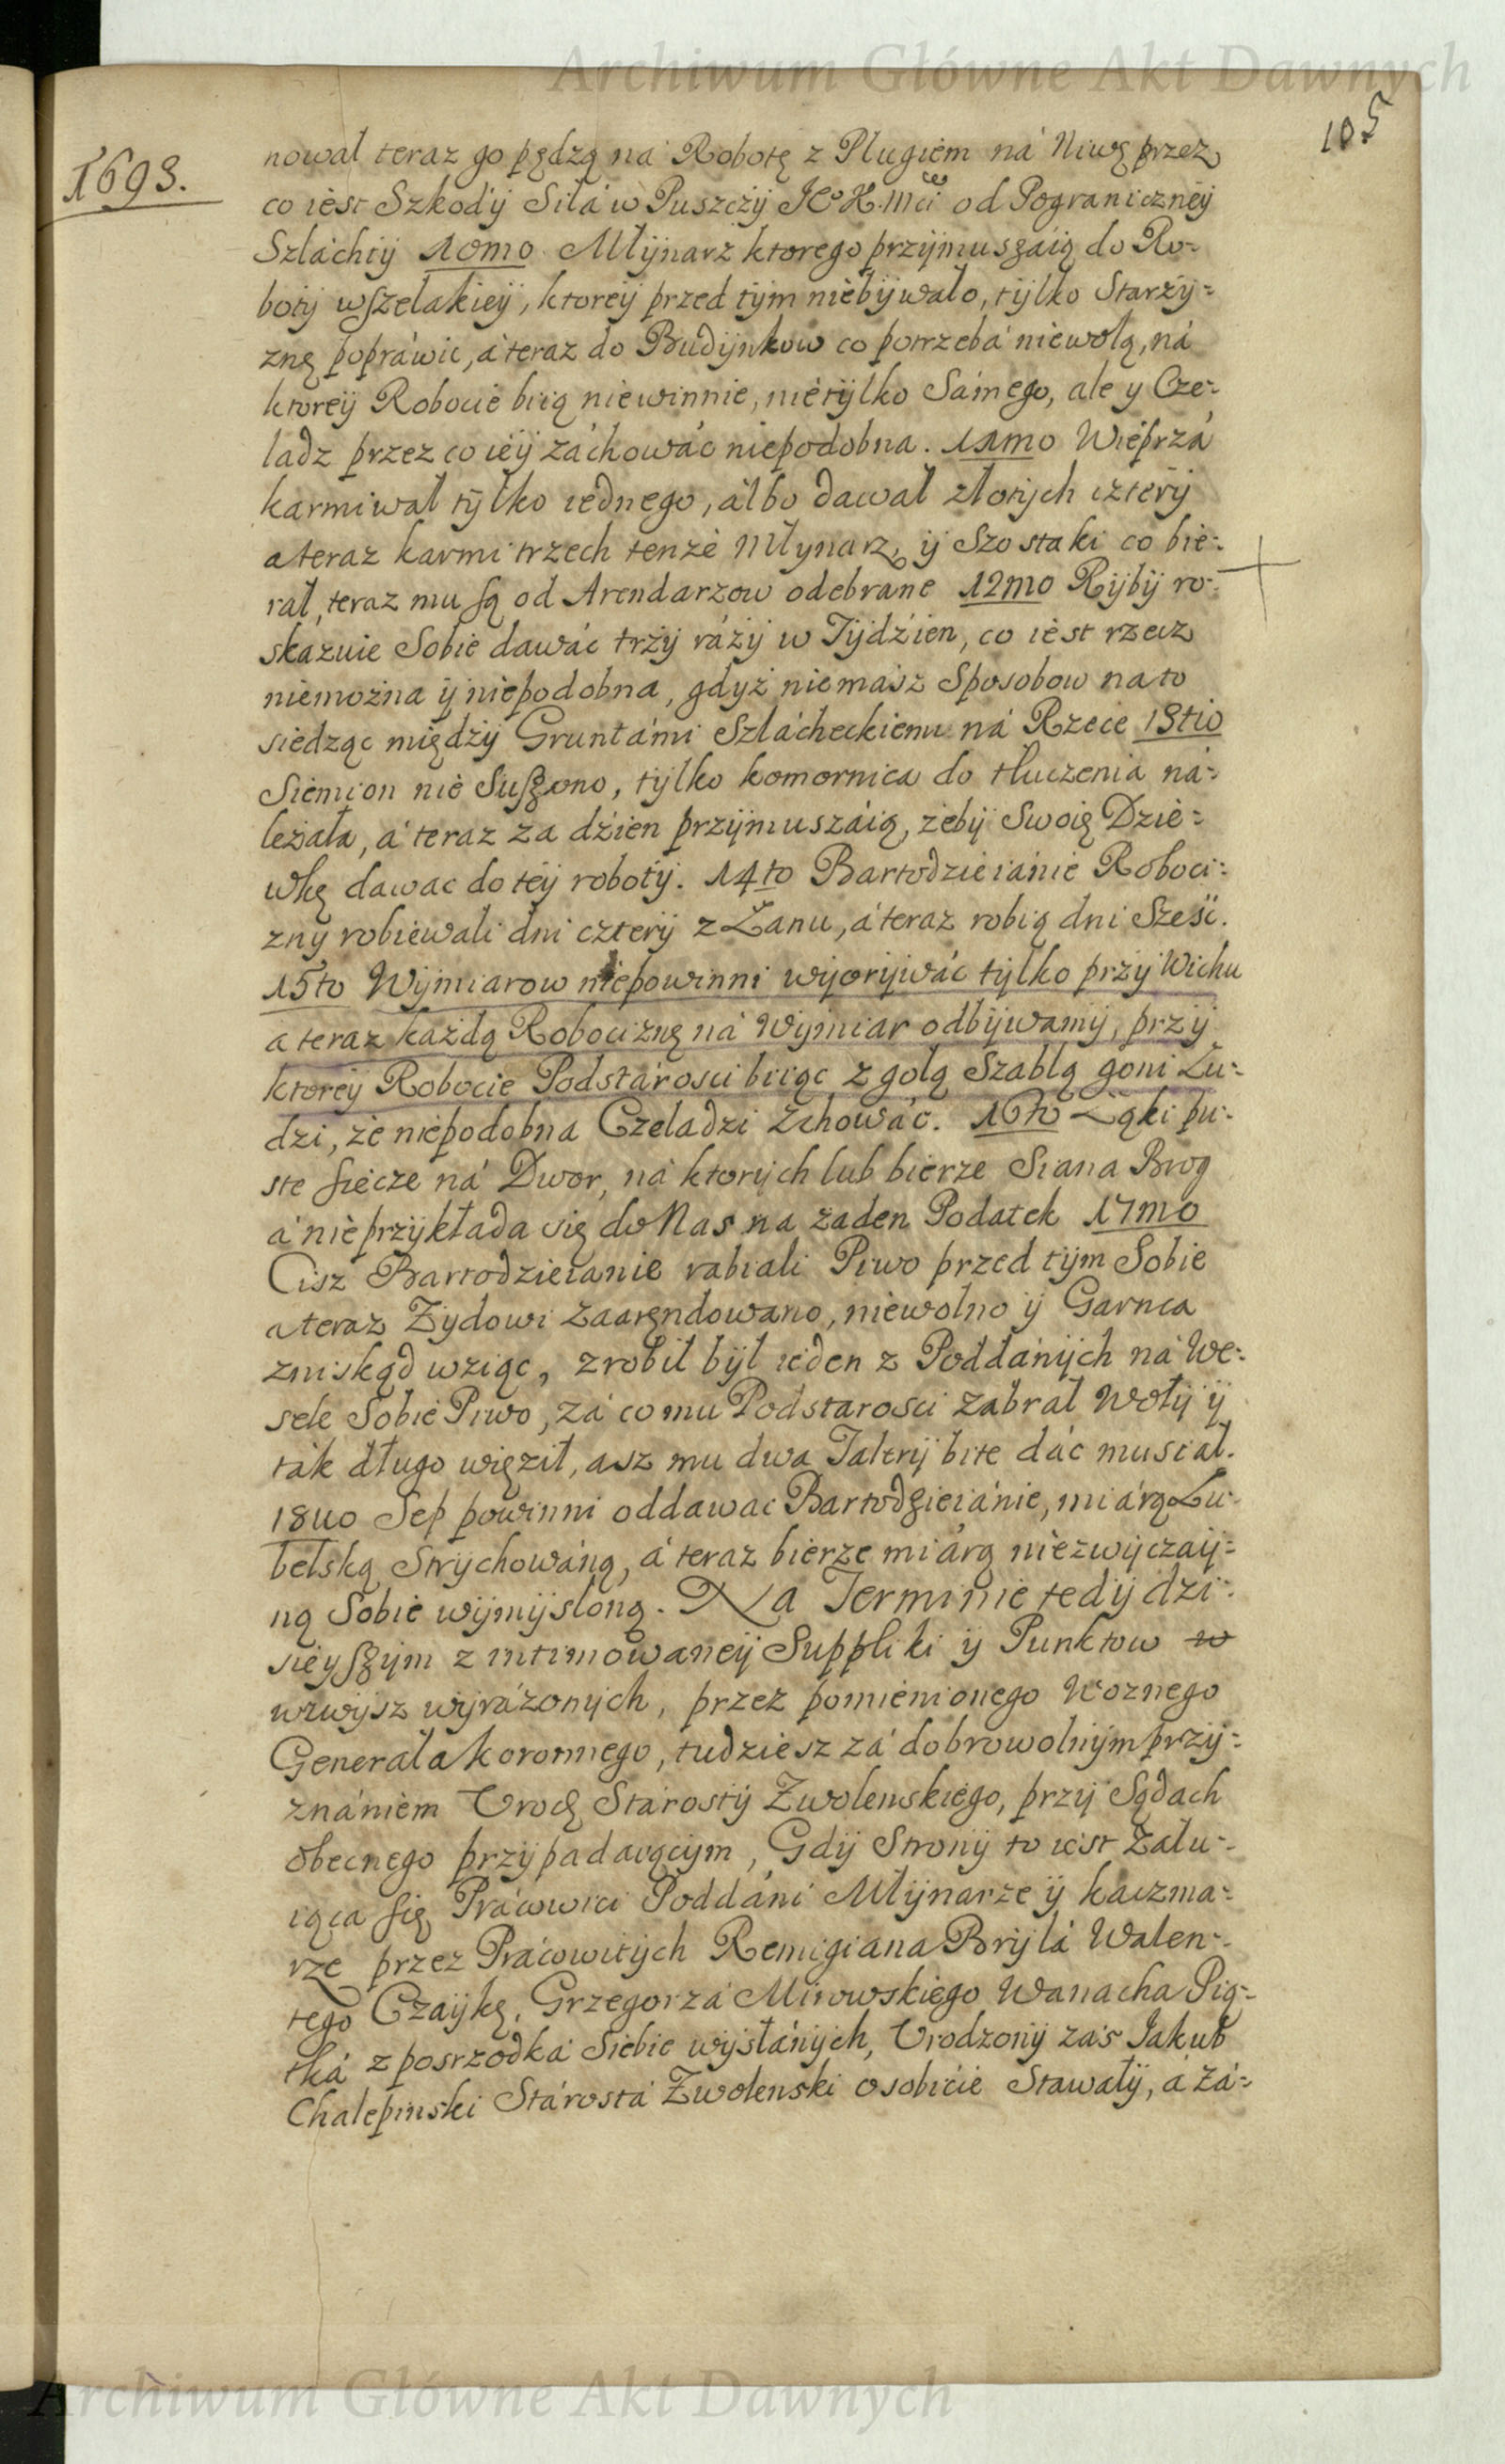 Archiwum Główne Akt Dawnych
105
1693.
nowal teraz go pędzą na Robotę z Plugiem ná Niwę przez
co iest Szkodÿ Siła w Puszczÿ JKoK.Mci od Pograniczneÿ
Szláchtÿ 10mo Młÿnarz ktorego przÿmuszáią do Ro=
botÿ wszelakieÿ, ktoreÿ przed tÿm niebÿwało, tÿlko Starżÿ=
znę popráwic, á teraz do Budÿnkow co potrzebá niewolą, ná
ktoreÿ Robocie biią niewinnie, nietÿlko Sámego, ale y Cze=
ladz przez co ieÿ záchowáć niepodobna. 11mo Wieprzá
karmiwał tÿlko iednego, álbo dawał złotÿch czterÿ
a teraz karmi trzech tenże Młynarz, ÿ Szostaki co bie=
rał, teraz mu są od Arendarzow odebrane 12mo Rÿbÿ ro=
skazuie Sobie dawáć trzÿ rázÿ w Tÿdźien, co iest rzecz
niemożna ÿ niepodobna, gdyż niemász Sposobow na to
siedząc międzÿ Gruntámi Szlácheckiemi ná Rzece 13tio
Siemion nie Suszono, tÿlko komornica do tłuczenia na=
leżała, á teraz za dźien przÿmuszáią, żebÿ Swoię Dzie=
wkę dawac do teÿ robotÿ. 14to Bartodzieiánie Roboci=
znÿ robiewali dni czterÿ z Łanu, á teraz robią dni Sześć.
15to Wÿmiarow niepowinni wÿorÿwáć tÿlko przÿ Wichu
a teraz każdą Robociznę ná Wÿmiar odbÿwamÿ, przÿ
ktoreÿ Robocie Podstárosci biiąc z gołą Szablą goni Lu=
dzi, że niepodobna Czeladzi zchowáć. 16to Łąki pu=
ste siecze ná Dwor, ná ktorÿch lub bierze Siana Brog
á nieprzÿkłada się do Nas na żaden Podatek 17mo
Cisz Bartodzieianie rabiali Piwo przed tÿm Sobie
a teraz Żydowi zaaręndowano, niewolno ÿ Garnca
zniskąd wziąc, zrobił bÿł ieden z Poddánÿch ná We=
sele Sobie Piwo, zá co mu Podstarosci zabrał Wołÿ ÿ
ták długo więził, asz mu dwa Talerÿ bite dáć musiał.
18uo Sep powinni oddawac Bartodzieiánie, miárą Lu=
belską Strychowáną, á teraz bierze miárą niezwÿczaÿ=
ną Sobie wÿmÿsloną. Na Terminie tedÿ dzi=
sieyszÿm z intimowaneÿ Suppliki ÿ Punktow w
wzwÿsz wÿrázonÿch, przez pomienionego Woznego
Generała koronnego, tudziesz zá dobrowolnÿm przÿ=
znániem Urodz Stárostÿ Zwolenskiego, przÿ Sądach
obecnego przÿpadaiącÿm, Gdÿ Stronÿ to iest Żału=
iąca się Prácowici Poddáni Młÿnarze ÿ kaczma=
rze przez Prácowitÿch Remigiana Brÿlá Walen=
tego Czaÿkę, Grzegorzá Mirowskiego Wanacha Pią=
tká z posrzodká Siebie wÿsłánÿch, Urodzonÿ zás Jakub
Chalepinski Stárostá Zwolenski osobiście Stawałÿ, á zá=
Archiwum Główne Akt Dawnych